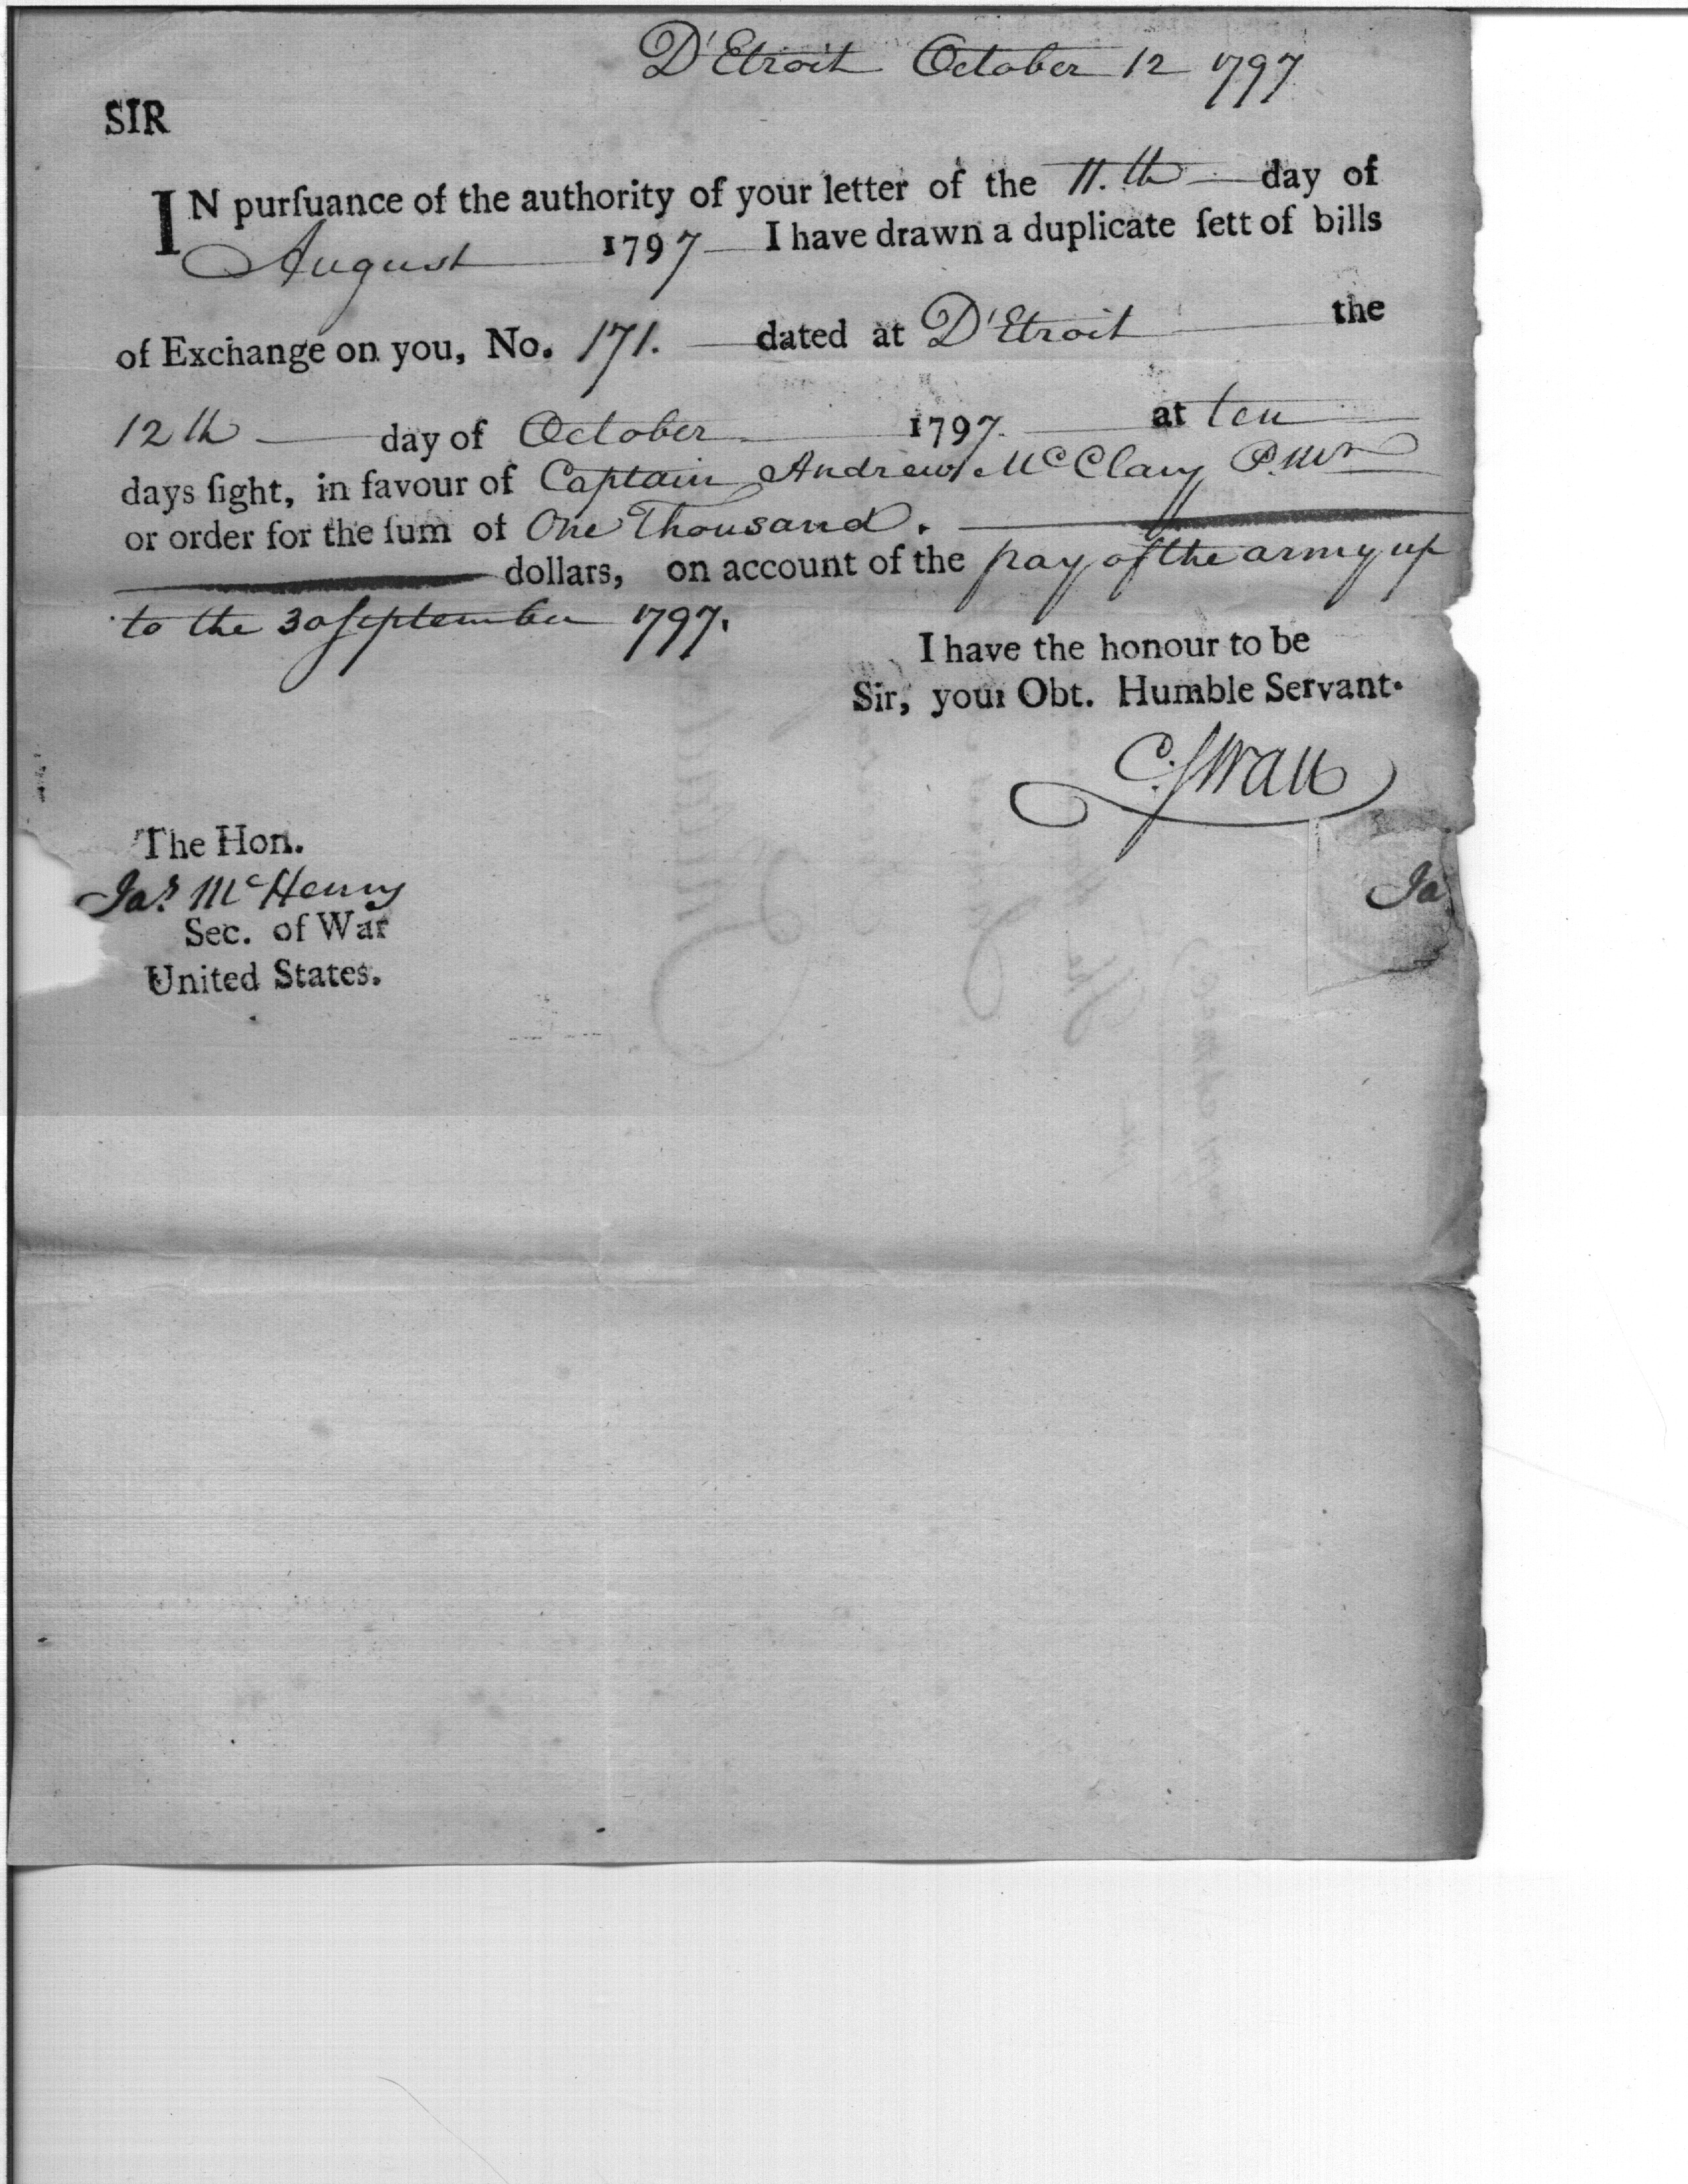 D'Etroit October 12 1797
SIR
IN purſuance of the authority of your letter of the 11.th day of
August 1797 I have drawn a duplicate ſett of bills
of Exchange on you, No. 171. dated at D'Etroit the
12th day of October 1797. at ten
days ſight, in favour of Captain Andrew McClary P.Mr
or order for the ſum of One Thousand.
dollars, on account of the pay of the army up
to the 30 September 1797.
I have the honour to be
Sir, your Obt. Humble Servant.
C. Swan
The Hon.
Jas. McHenry
Sec. of War
United States.
Ja